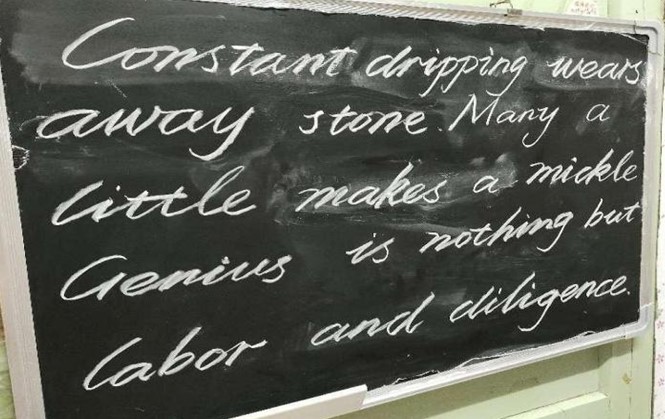 Constant dripping wears
away stone. Many a
little makes a mickle
Genius is nothing but
labor and diligence.